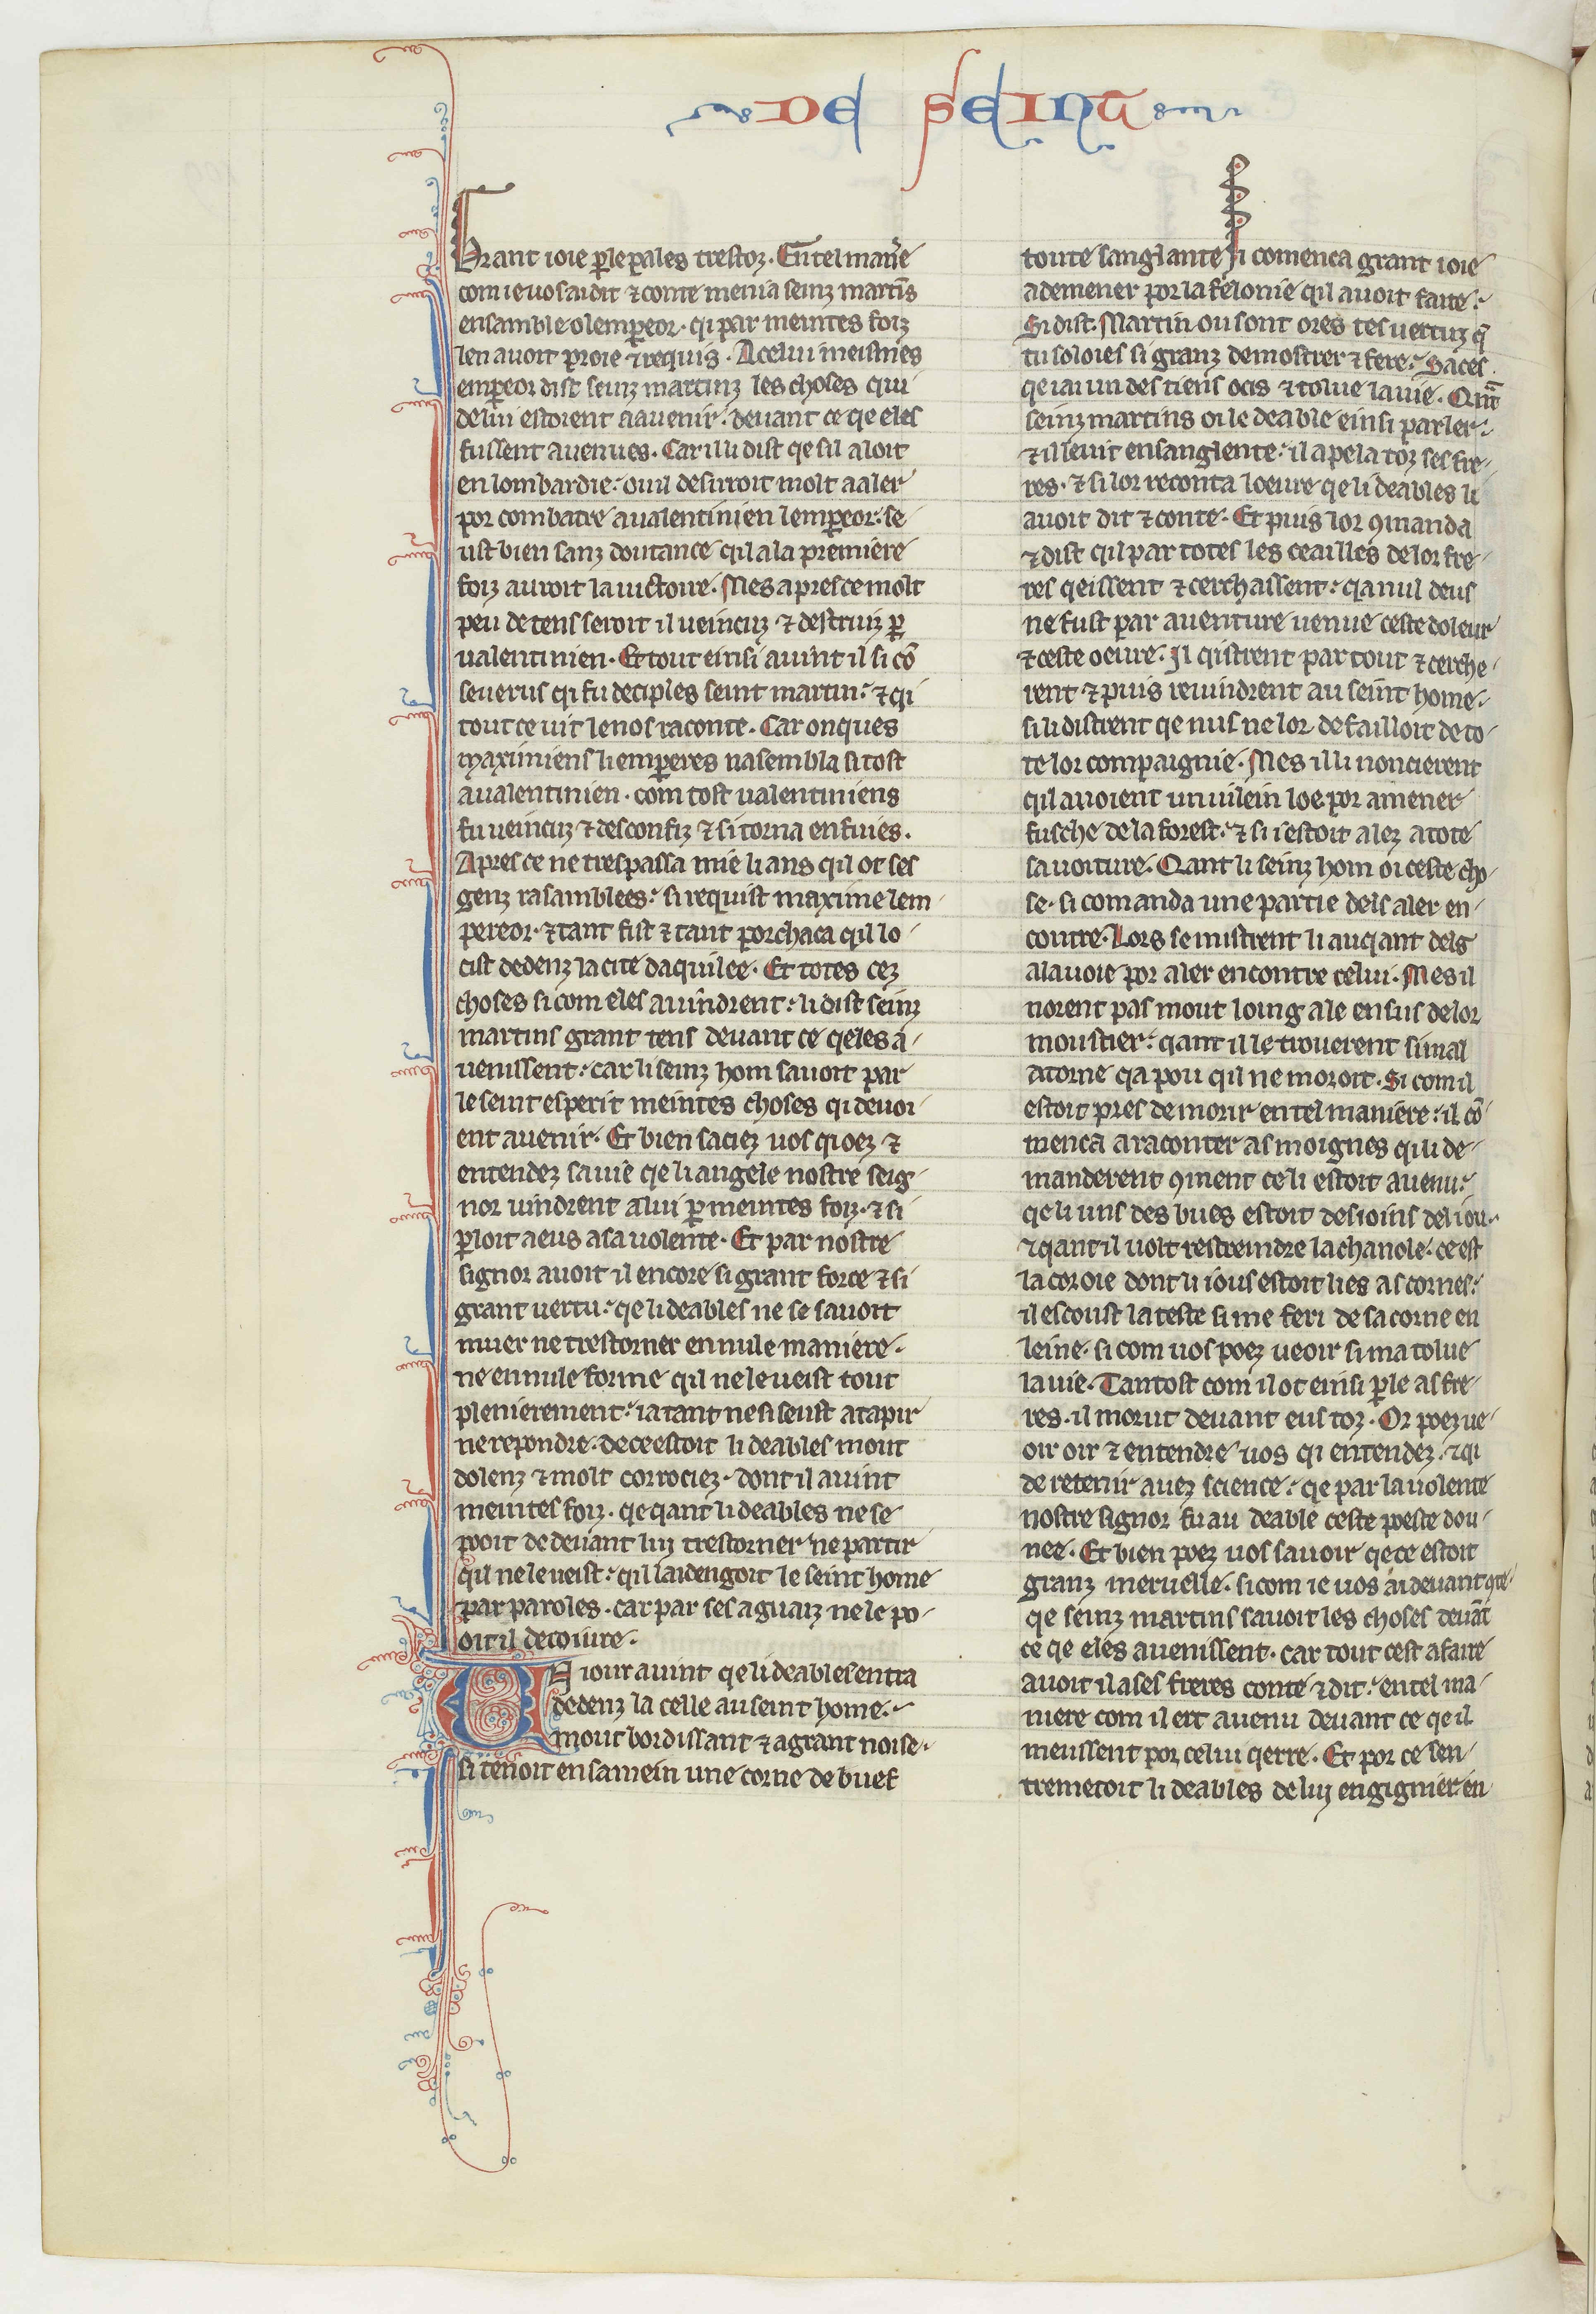 DE SEINT
Grant ioie ꝑ le pales trestoz. En tel maniꝰe
com ie uos ai dit ⁊ conte menia seinz martins
ensamble o lempeor. qi par meintes foiz
len auoit proie ⁊ requis. A celui meismes
empeor dist seinz martinz les choses qui
de lui estoient a auenir. deuant ce qe eles
fussent auenues. Car il li dist qe sil aloit
en lombardie. ou il desirroit molt a aler
por combatre a ualentinien lempeor. se
ust bien sanz doutance qil a la premiere
foiz auroit la uictoire. Mes apres ce molt
peu de tens seroit il ueincuz ⁊ destruiz ꝑ
ualentinien. Et tout einsi auint il si cō
seuerus qi fu deciples seint martin. ⁊ qi
tout ce uit le nos raconte. Car onques
maximiens li emperes nasembla si tost
a ualentinien. com tost ualentiniens
fu ueincuz ⁊ desconfiz ⁊ si torna en fuies.
Apres ce ne trespassa mie li ans qil ot ses
genz rasamblees. si requist maxime lem
pereor. ⁊ tant fist ⁊ tant porchaca qil lo
cist dedenz la cite daquilee. Et totes cez
choses si com eles auindrent. li dist seinz
martins grant tens deuant ce qeles a
uenissent. car li seinz hom sauoit par
le seint esperit meintes choses qi deuoi
ent auenir. Et bien saciez uos qi oez ⁊
entendez sa uie qe li angele nostre seig
nor uindrent a lui ꝑ meintes foiz. ⁊ si
ꝑloit a eus a sa uolente. Et par nostre
signor auoit il encore si grant force ⁊ si
grant uertu. qe li deables ne se sauoit
muer ne trestorner en nule maniere.
ne en nule forme qil ne le ueist tout
plenierement. ia tant ne si seust atapir
ne repondre. de ce estoit li deables mout
dolenz ⁊ molt corrociez. dont il auint
meintes foiz. qe qant li deables ne se
pooit de deuant lui trestorner ne partir
qil ne le ueist. qil laidengoit le seint home
par paroles. car par ses aguaiz ne le po
oit il decoiure.
Un iour auint qe li deables entra
dedenz la celle au seint home.
mout bordissant ⁊ a grant noise.
si tenoit en sa mein une corne de buef
toute sanglante si comenca grant ioie
a demener por la felonie qil auoit faite.
Si dist. Martin ou sont ores tes uertuz q̄
tu soloies si granz demostrer ⁊ fere. Saces
qe iai un des tiens ocis ⁊ tolue la uie. Qnt
seinz martins oi le deable einsi parler.
⁊ il le uit ensanglente. il apela toz ses fre
res. ⁊ si lor reconta loeure qe li deables li
auoit dit ⁊ conte. Et puis lor ꝯmanda
⁊ dist qil par totes les ceailles de lor fre
res qeissent ⁊ cerchassent. qa nul deus
ne fust par auenture uenue ceste doleur
⁊ ceste oeure. Il qistrent par tout ⁊ cerche
rent ⁊ puis reuindrent au seint home.
si li distrent qe nus ne lor defailloit de to
te lor compaignie. Mes il li noncierent
qil auoient un uilein loe por amener
busche de la forest. ⁊ si sestoit alez a tote
sa uoiture. Qant li seinz hom oi ceste cho
se. si comanda une partie dels aler en
contre. Lors se mistrent li auqant dels
a la uoie por aler encontre celui. Mes il
norent pas mout loing ale ensus de lor
moustier. qant il le trouerent si mal
atorne qa pou qil ne moroit. Si com il
estoit pres de morir en tel maniere. il cō
menca a raconter as moignes qi li de
manderent ꝯment ce li estoit auenu.
qe li uns des bues estoit desioins del iou.
⁊ qant il uolt restreindre la chanole. ce est
la coroie dont li ious estoit lies as cornes.
il escoust la teste si me feri de sa corne en
leine. si com uos poez ueoir si ma tolue
la uie. Tantost com il ot einsi ꝑle as fre
res. il morut deuant eus toz. Or poez ue
oir oir ⁊ entendre uos qi entendez. ⁊ qi
de retenir auez science. qe par la uolente
nostre signor fu au deable ceste poeste dou
nee. Et bien poez uos sauoir qe ce estoit
granz merueille. si com ie uos ai deuant ꝯte
qe seinz martins sauoit les choses deuāt
ce qe eles auenissent. car tout cest afaire
auoit il a ses freres conte ⁊ dit. en tel ma
niere com il ert auenu deuant ce qe il
meussent por celui qerre. Et por ce sen
tremetoit li deables de lui engignier en